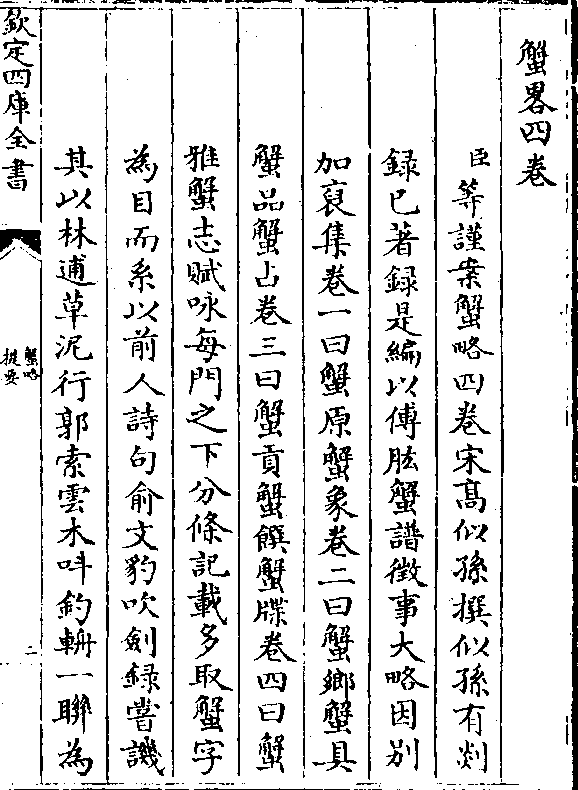 蟹畧四卷
臣等謹案蟹略四卷宋髙似孫撰似孫有剡
録已著録是編以傅肱蟹譜徴事大略因别
加裒集卷一曰蟹原蟹象卷二曰蟹鄉蟹具
蟹品蟹占卷三曰蟹貢蟹饌蟹牒卷四曰蟹
雅蟹志賦咏每門之下分條記載多取蟹字
為目而系以前人詩句俞文豹吹劍録嘗譏
其以林逋草泥行郭索雲木呌鈎輈一聯為
欽定四庫全書
蟹略
提要
二